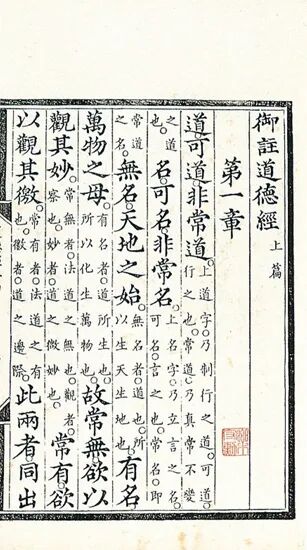 御註道德經 上篇
第一章
道可道。非常道。上道字乃制行之道。可道。行之也。常道乃真常不變
之道也。名可名。非常名。上名字乃立言之名。可名。言之也。常名即
常道之名。無名。天地之始。無名者。道也。所以生天生地也。有名
萬物之母。所以化生萬物也。故常無欲以
觀其妙。常無者。法道之無也。觀者。察也。妙者。道之微妙也。常有欲
以觀其徼。常有者。法道之有也。徼者。道之邊際。此兩者同出